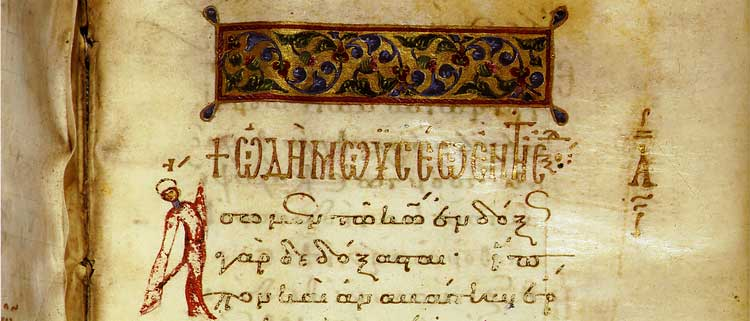 + ὠδὴ μωϋσέως ἐν τῆ ἐξο
ἄσωμεν τῶ κῶ ἐνδόξ
γὰρ δεδόξασται· ἵπ
πον καὶ ἀναβάτην ἔρ